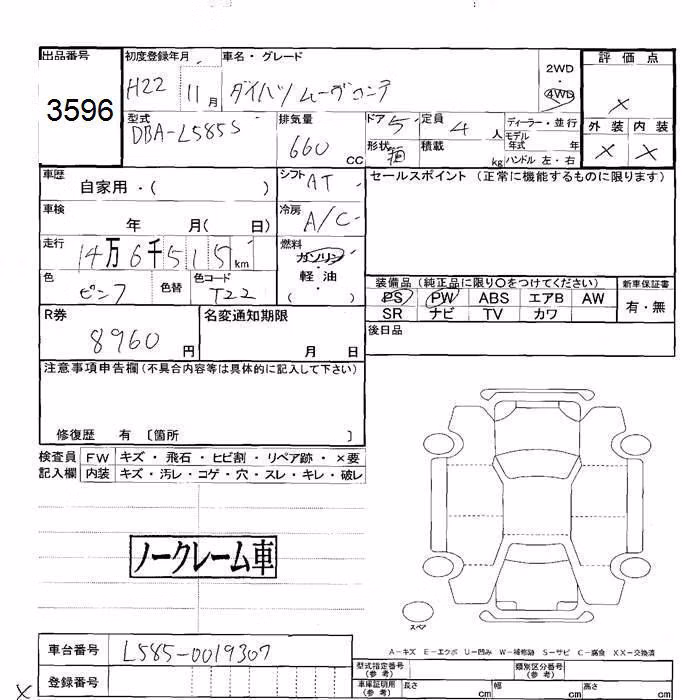 出品番号 初度登録年月 車名・グレード 2WD・4WD 評価点
3596 H22 11月 ダイハツ ムーヴコンテ ×
型式 排気量 ドア 5 定員 4人 ディーラー・並行 外装 内装
DBA-L585S 660 CC 形状 箱 積載 kg モデル年式 年 × ×
ハンドル 左・右
車歴 自家用・( ) シフト AT セールスポイント (正常に機能するものに限ります)
車検 年 月( 日) 冷房 A/C
走行 14万6千515km 燃料 ガソリン・軽油 ( )
色 ピンク 色替 色コード T22 装備品 (純正品に限り○をつけてください) 新車保証書
PS PW ABS エアB AW 有・無
SR ナビ TV カワ
R券 8960円 名変通知期限 月 日 後日品
注意事項申告欄 (不具合内容等は具体的に記入して下さい)
修復歴 有 〔箇所 〕
検査員 FW キズ・飛石・ヒビ割・リペア跡・×要
記入欄 内装 キズ・汚レ・コゲ・穴・スレ・キレ・破レ
ノークレーム車
スペア
A-キズ E-エクボ U-凹み W-補修跡 S-サビ C-腐食 XX-交換済
車台番号 L585-0019307
型式指定番号 (参考) 類別区分番号 (参考)
登録番号 車庫証明用 (参考) 長さ cm 幅 cm 高さ cm
×